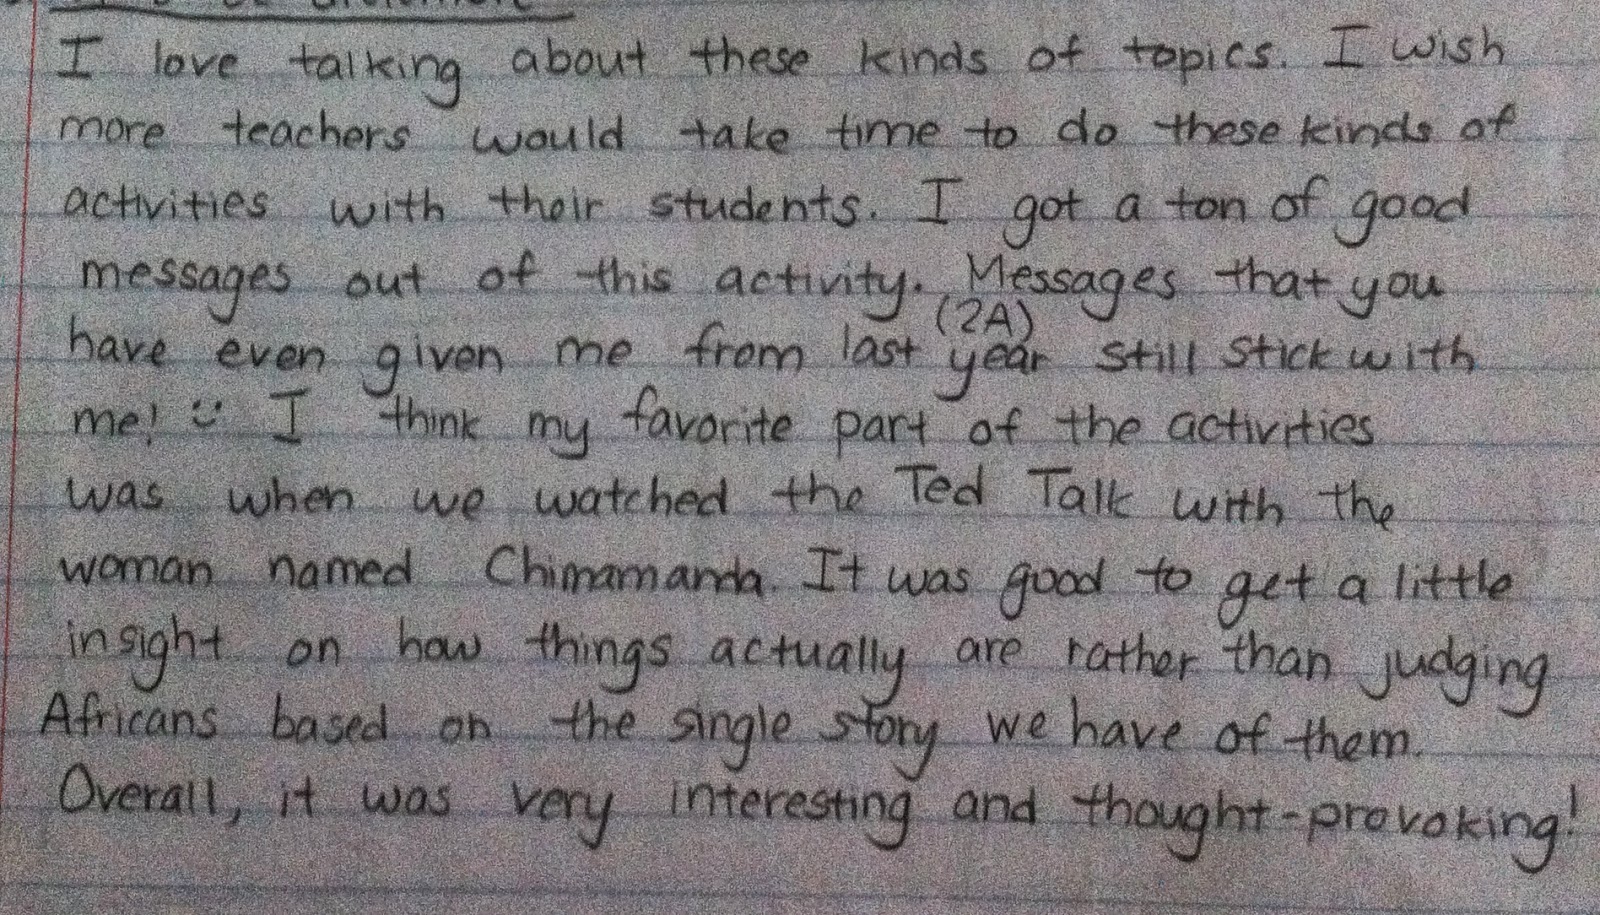 I love talking about these kinds of topics. I wish
more teachers would take time to do these kinds of
activities with their students. I got a ton of good
messages out of this activity. Messages that you
(2A)
have even given me from last year still stick with
me! :) I think my favorite part of the activities
was when we watched the Ted Talk with the
woman named Chimamanda. It was good to get a little
insight on how things actually are rather than judging
Africans based on the single story we have of them.
Overall, it was very interesting and thought-provoking!